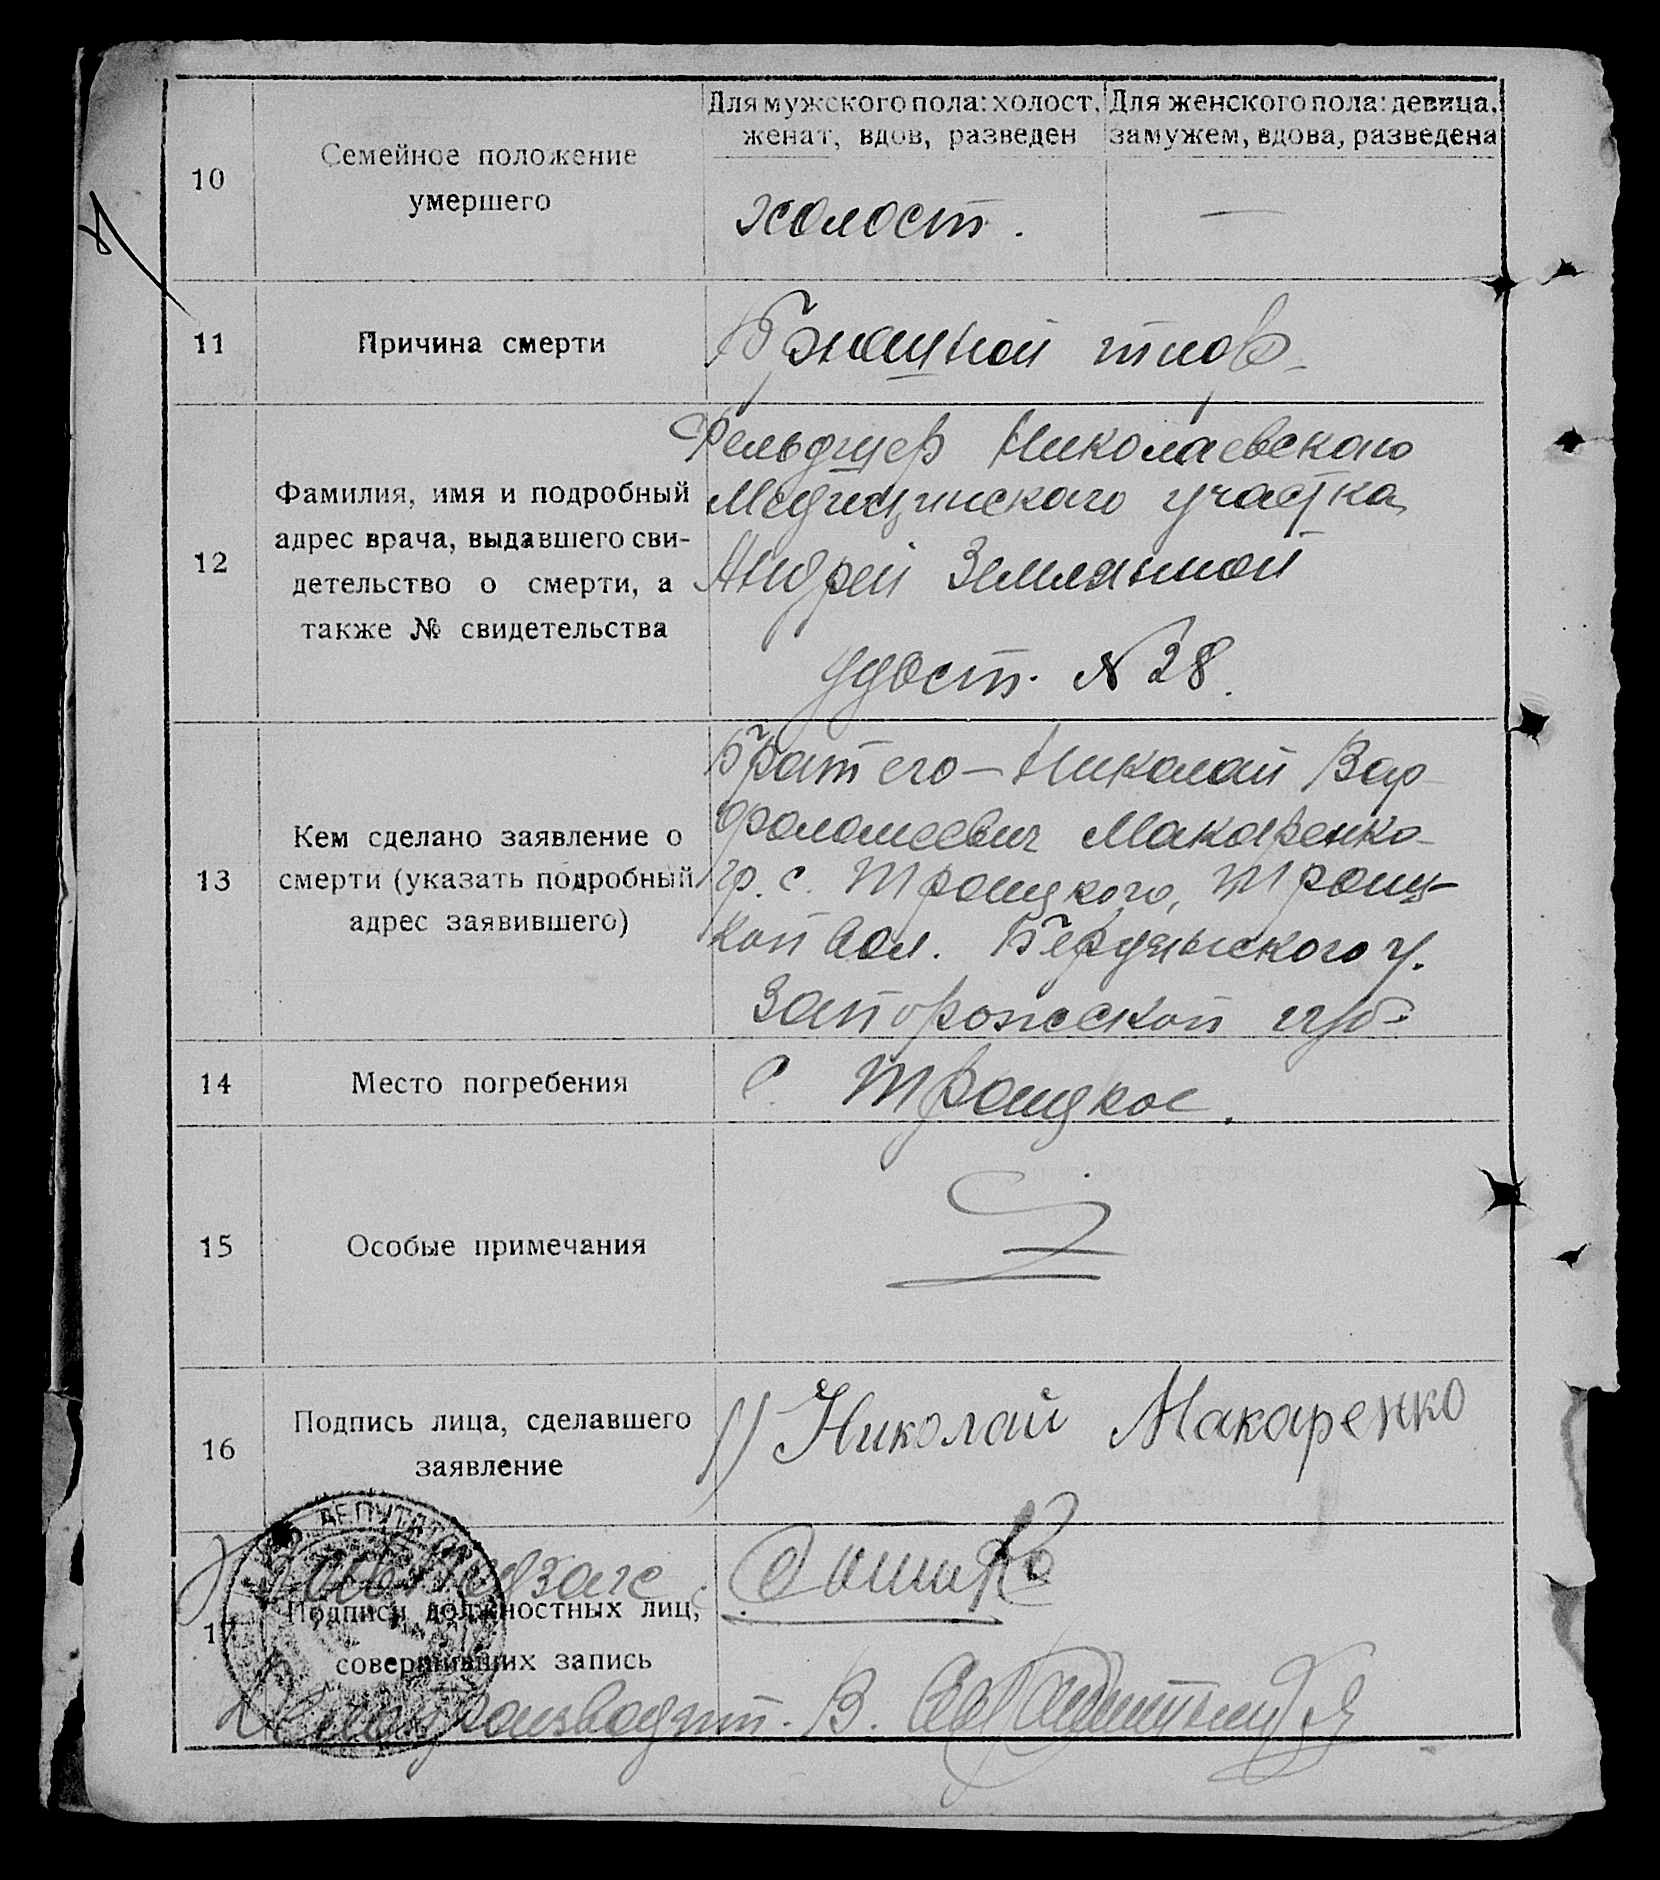 10
Семейное положение
умершего
Для мужского пола: холост,
женат, вдов, разведен
Для женского пола: девица,
замужем, вдова, разведена
холост.
—
11
Причина смерти
Брюшной тиф
12
Фамилия, имя и подробный
адрес врача, выдавшего сви-
детельство о смерти, а
также № свидетельства
Фельдшер Николаевского
Медицинского участка
Андрей Земляной
удост. № 28.
13
Кем сделано заявление о
смерти (указать подробный
адрес заявившего)
Брат его — Николай Вар-
фоломеевич Макаренко
гр. с. Троицкого, Троиц-
кой вол. Бердянского у.
Запорожской губ.
14
Место погребения
с. Троицкое.
15
Особые примечания
16
Подпись лица, сделавшего
заявление
1) Николай Макаренко
17
Подписи должностных лиц,
совершивших запись
Делопроизводит. В.
ДЕПУТАТОВ